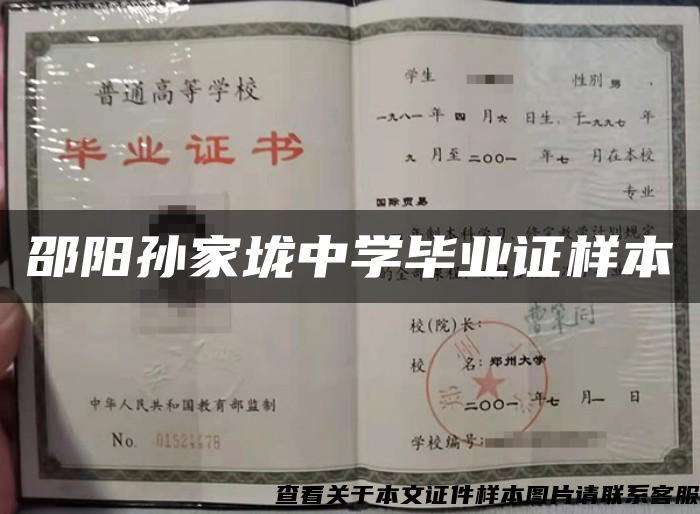 普通高等学校
毕业证书
中华人民共和国教育部监制
No. 01524478
学生 性别 男 ，
一九八一 年 四 月 六 日生、于 一九九七 年
九 月至 二〇〇一 年 七 月在本校
国际贸易 专业
年制本科学习
邵阳孙家垅中学毕业证样本
校(院)长：
校 名：郑州大学
二〇〇一 年 七 月 一 日
学校编号：
查看关于本文证件样本图片请联系客服